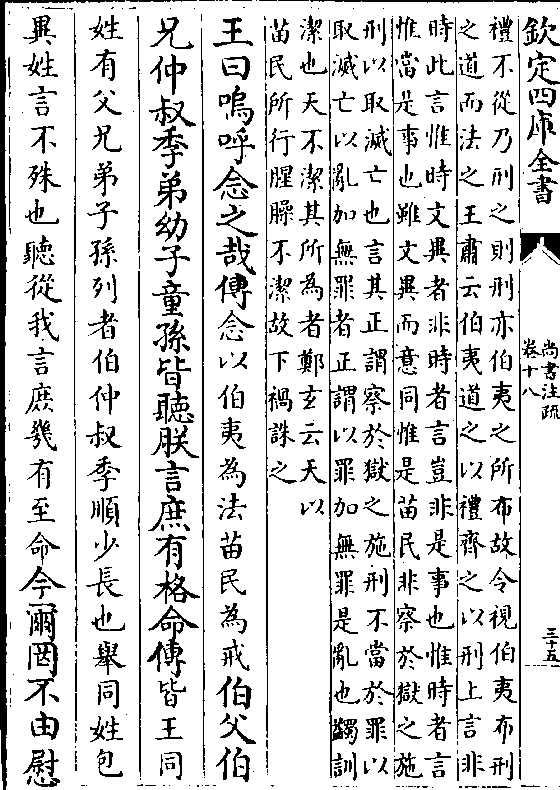 欽定四庫全書
尚書注疏
卷十八
三十五
禮不從乃刑之則刑亦伯夷之所布故令視伯夷布刑
之道而法之王肅云伯夷道之以禮齊之以刑上言非
時此言惟時文異者非時者言豈非是事也惟時者言
惟當是事也雖文異而意同惟是苗民非察於獄之施
刑以取滅亡也言其正謂察於獄之施刑不當於罪以
取滅亡以亂加無罪者正謂以罪加無罪是亂也蠲訓
潔也天不潔其所為者鄭玄云天以
苗民所行腥臊不潔故下禍誅之
王曰嗚呼念之哉傳念以伯夷為法苗民為戒伯父伯
兄仲叔季弟幼子童孫皆聽朕言庶有格命傳皆王同
姓有父兄弟子孫列者伯仲叔季順少長也舉同姓包
異姓言不殊也聽從我言庶幾有至命今爾罔不由慰